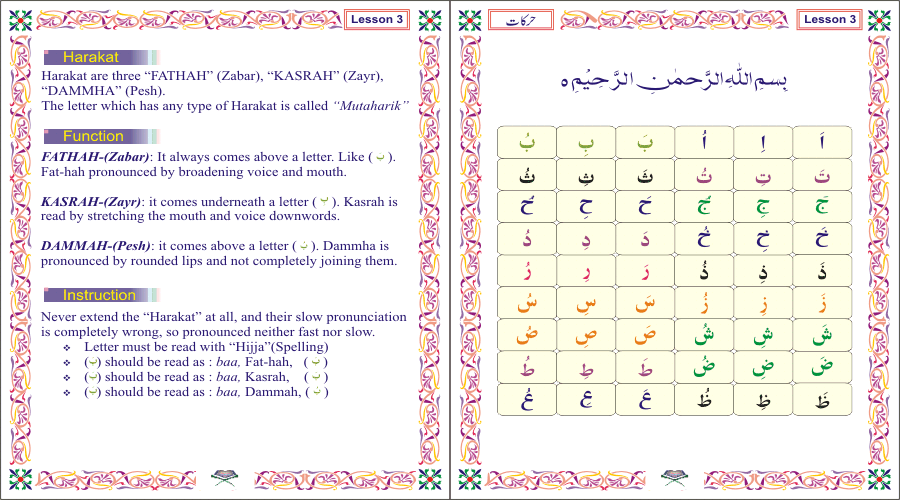 Lesson 3
Harakat
Harakat are three “FATHAH” (Zabar), “KASRAH” (Zayr),
“DAMMHA” (Pesh).
The letter which has any type of Harakat is called “Mutaharik”
Function
FATHAH-(Zabar): It always comes above a letter. Like ( بَ ).
Fat-hah pronounced by broadening voice and mouth.
KASRAH-(Zayr): it comes underneath a letter ( بِ ). Kasrah is
read by stretching the mouth and voice downwords.
DAMMAH-(Pesh): it comes above a letter ( بُ ). Dammha is
pronounced by rounded lips and not completely joining them.
Instruction
Never extend the “Harakat” at all, and their slow pronunciation
is completely wrong, so pronounced neither fast nor slow.
❖ Letter must be read with “Hijja”(Spelling)
❖ (بَ) should be read as : baa, Fat-hah, ( بَ )
❖ (بِ) should be read as : baa, Kasrah, ( بِ )
❖ (بُ) should be read as : baa, Dammah, ( بُ )
حركات
Lesson 3
بِسمِ اللّٰهِ الرَّحمٰنِ الرَّحِيمِ ه
اَ اِ اُ بَ بِ بُ
تَ تِ تُ ثَ ثِ ثُ
جَ جِ جُ حَ حِ حُ
خَ خِ خُ دَ دِ دُ
ذَ ذِ ذُ رَ رِ رُ
زَ زِ زُ سَ سِ سُ
شَ شِ شُ صَ صِ صُ
ضَ ضِ ضُ طَ طِ طُ
ظَ ظِ ظُ عَ عِ عُ